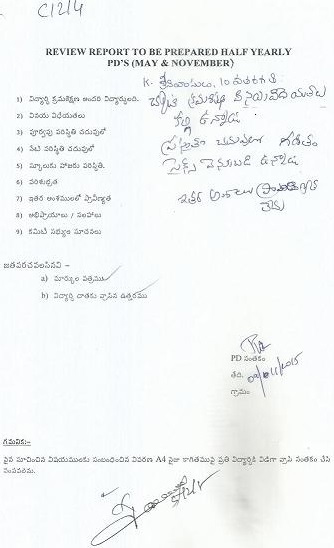 C1214
REVIEW REPORT TO BE PREPARED HALF YEARLY
PD'S (MAY & NOVEMBER)
K. శ్రీనివాసులు, 10 వ తరగతి
1) విద్యార్థి క్రమశిక్షణ అందరి విద్యార్థులది.
2) వినయ విధేయతలు
3) పూర్వపు పరిస్థితి చదువులో
4) నేటి పరిస్థితి చదువులో
5) స్కూలుకు హాజరు పరిస్థితి.
6) పరిశుభ్రత
7) ఇతర అంశములలో ప్రావీణ్యత
8) అభిప్రాయాలు / సలహాలు
9) కమిటి సభ్యుల సూచనలు
క్రమశిక్షణ వినయ విధేయతలు
కల్గి ఉన్నాడు
ప్రస్తుతం చదువులో గణితం
సైన్స్ వెనుబడి ఉన్నాడు
ఇతర అంశాలు
లేదు
జతపరచవలసినవి –
a) మార్కుల పత్రము
b) విద్యార్థి దాతకు వ్రాసిన ఉత్తరము
PD సంతకం
తేది.
గ్రామం
గమనిక:-
పైన సూచించిన విషయములకు సంబంధించిన వివరణ A4 సైజు కాగితముపై ప్రతి విద్యార్థికి విడిగా వ్రాసి సంతకం చేసి
పంపవలెను.